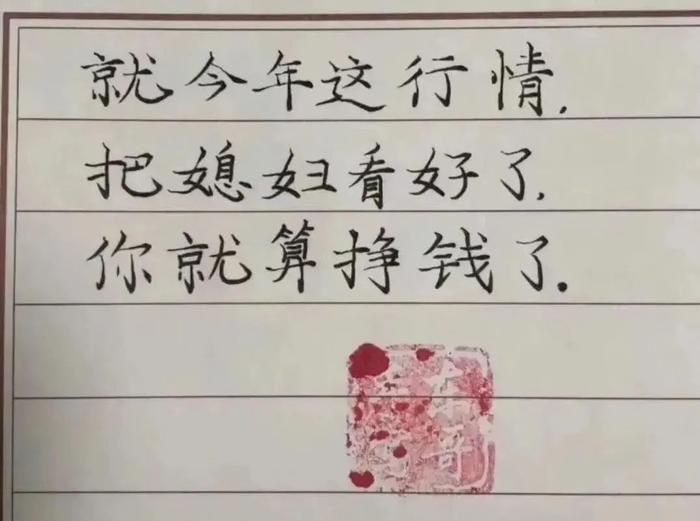 就今年这行情.
把媳妇看好了.
你就算挣钱了.